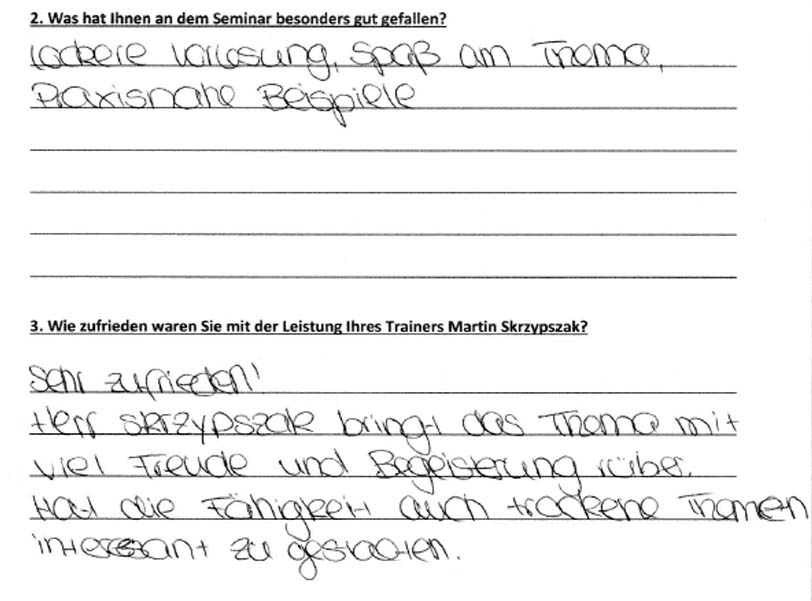 2. Was hat Ihnen an dem Seminar besonders gut gefallen?
lockere Vorlesung, Spaß am Thema,
Praxisnahe Beispiele
3. Wie zufrieden waren Sie mit der Leistung Ihres Trainers Martin Skrzypszak?
Sehr zufrieden!
Herr Skrzypszak bringt das Thema mit
viel Freude und Begeisterung rüber.
Hat die Fähigkeit auch trockene Themen
interessant zu gestalten.